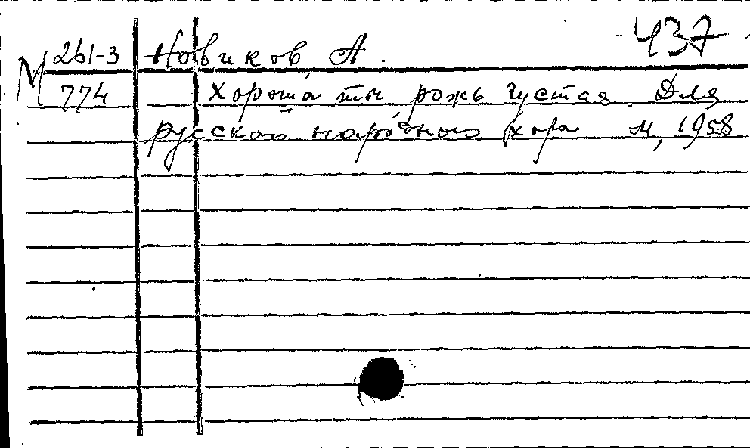 437
М 261-3 Новиков, А.
774 Хороша ты рожь густая. Для
русского народного хора М, 1958